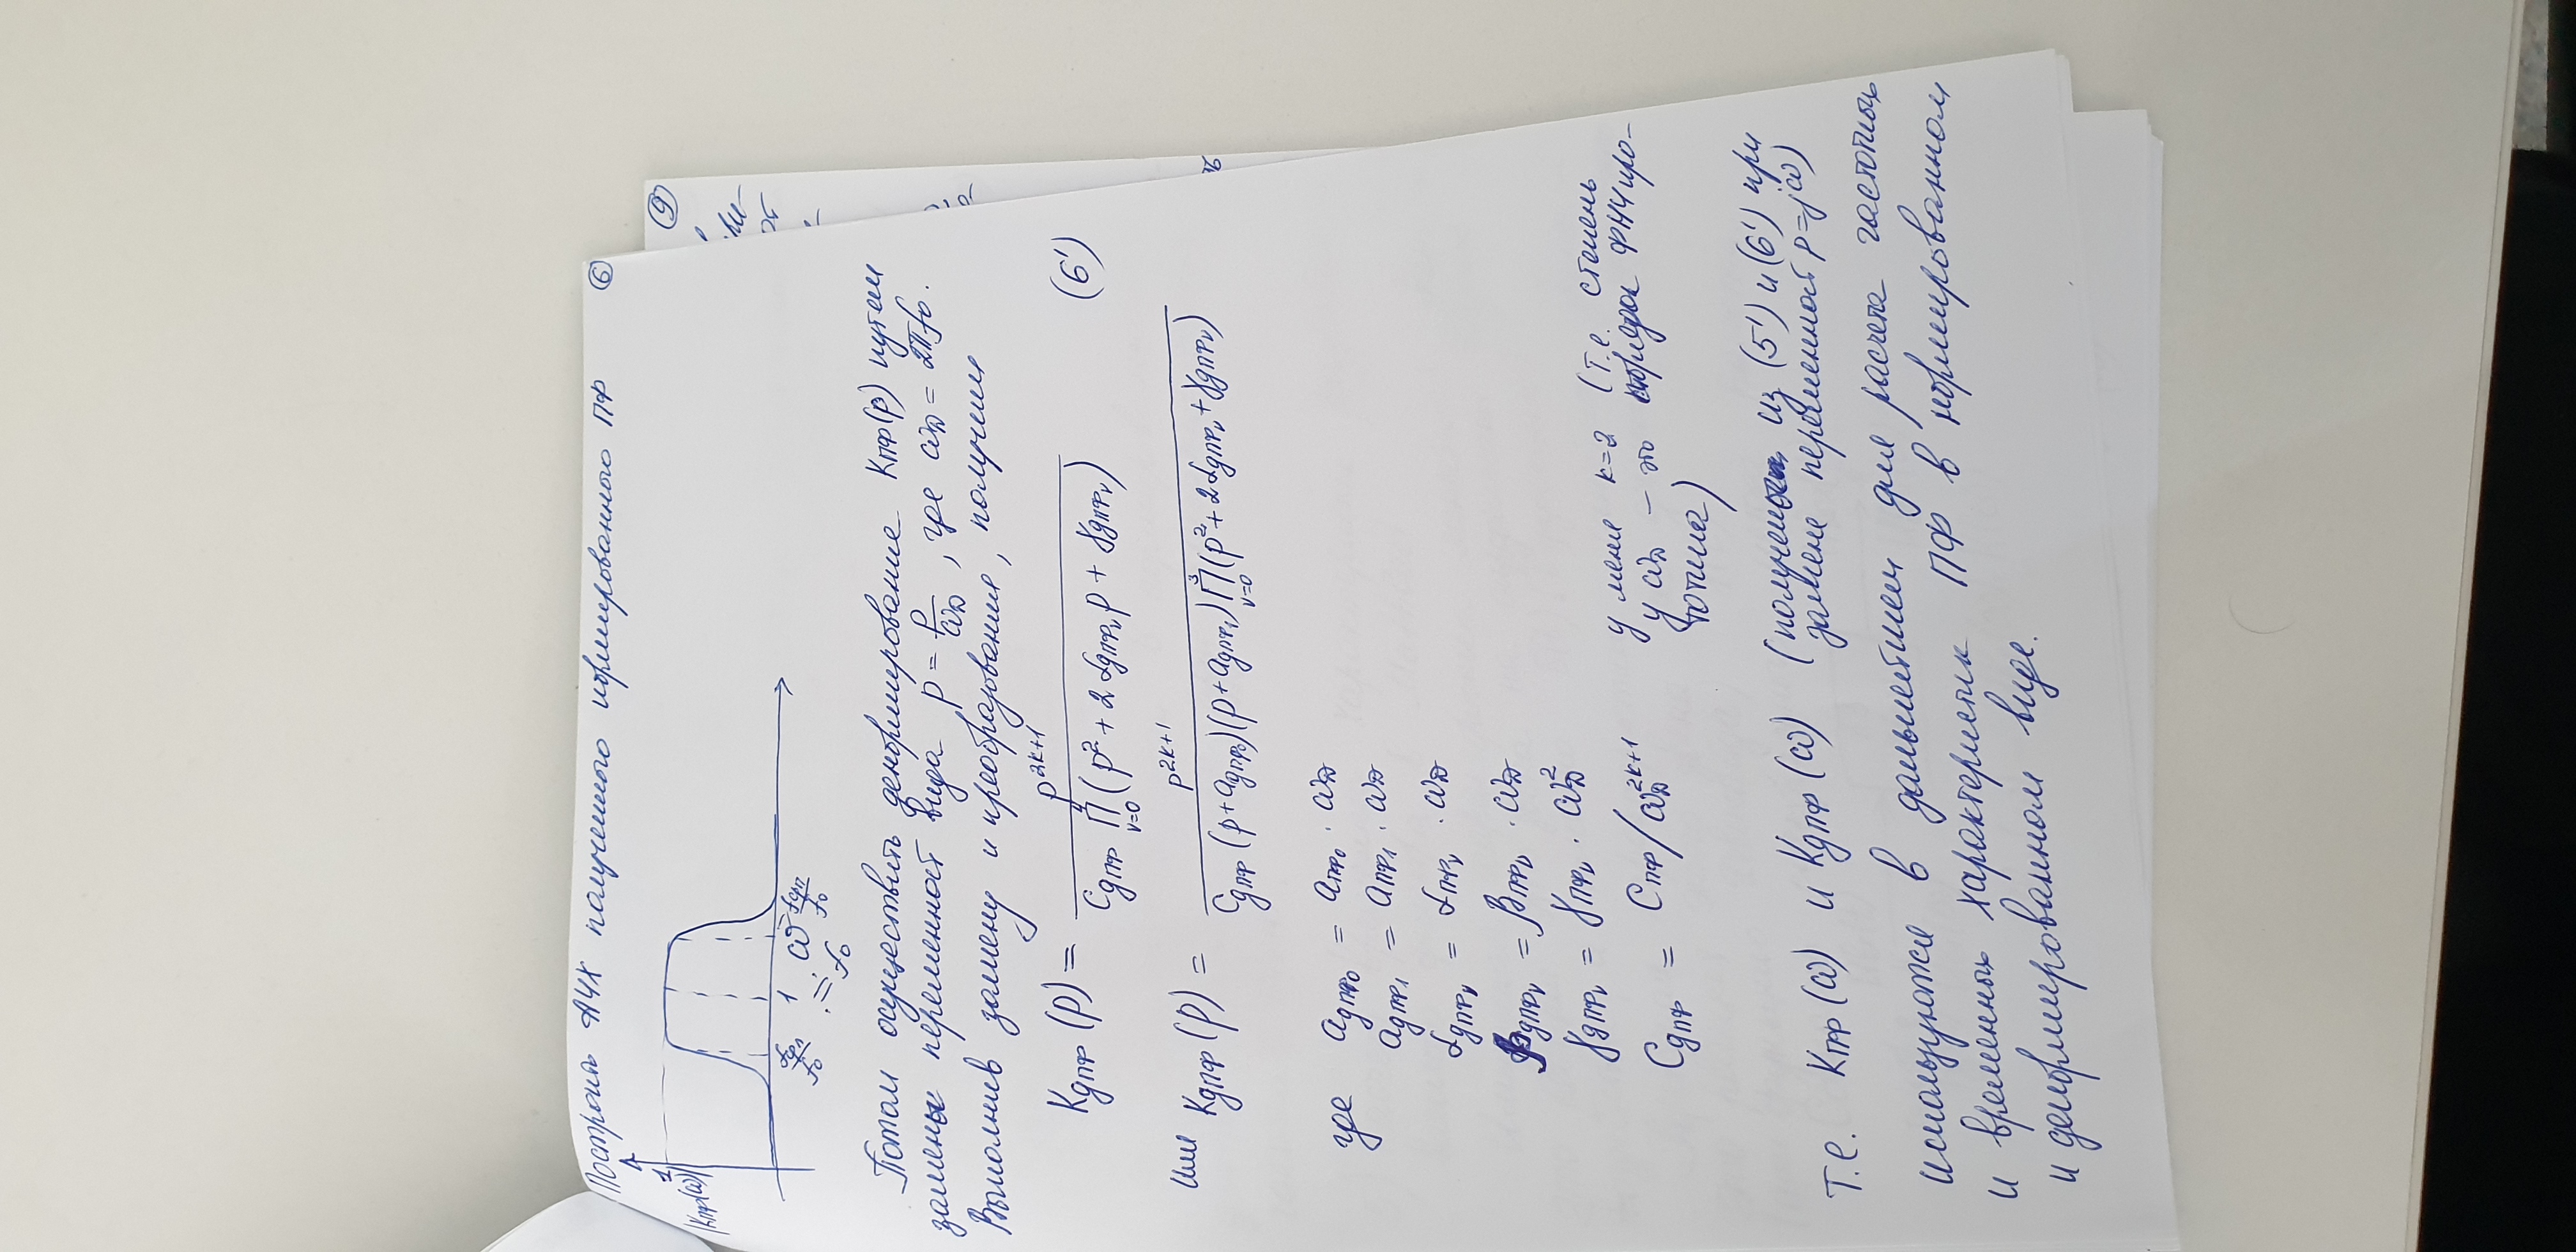 Построить АЧХ полученного нормированного ПФ ⑥
1
|Kпф(ω)|
fсрл/f0 1 ω fсрп/f0
≐ f0
Потом осуществить денормирование Kпф(p) путем
замены переменной вида p = p/ωд, где ωд = 2πf0.
Выполнив замену и преобразования, получим
Kдпф(p) = p^(2k+1) / (Cдпф ∏_(ν=0)^4 (p² + 2αдпфν p + γдпфν)) (6')
или Kдпф(p) = p^(2k+1) / (Cдпф (p+aдпф0)(p+aдпф1) ∏_(ν=0)^3 (p² + 2αдпфν + γдпфν))
где aдпф0 = aпф0 · ωд
aдпф1 = aпф1 · ωд
αдпфν = αпфν · ωд
βдпфν = βпфν · ωд
γдпфν = γпфν · ωд²
Cдпф = Cпф/ωд^(2k+1)
у меня k=2 (т.е. степень
у ωд – это порядок ФНЧ про-
тотипа)
Т.е. Kпф(ω) и Kдпф(ω) (получены из (5') и (6') при
замене переменной p=jω)
используются в дальнейшем для расчета частотных
и временных характеристик ПФ в нормированном
и денормированном виде.
⑨